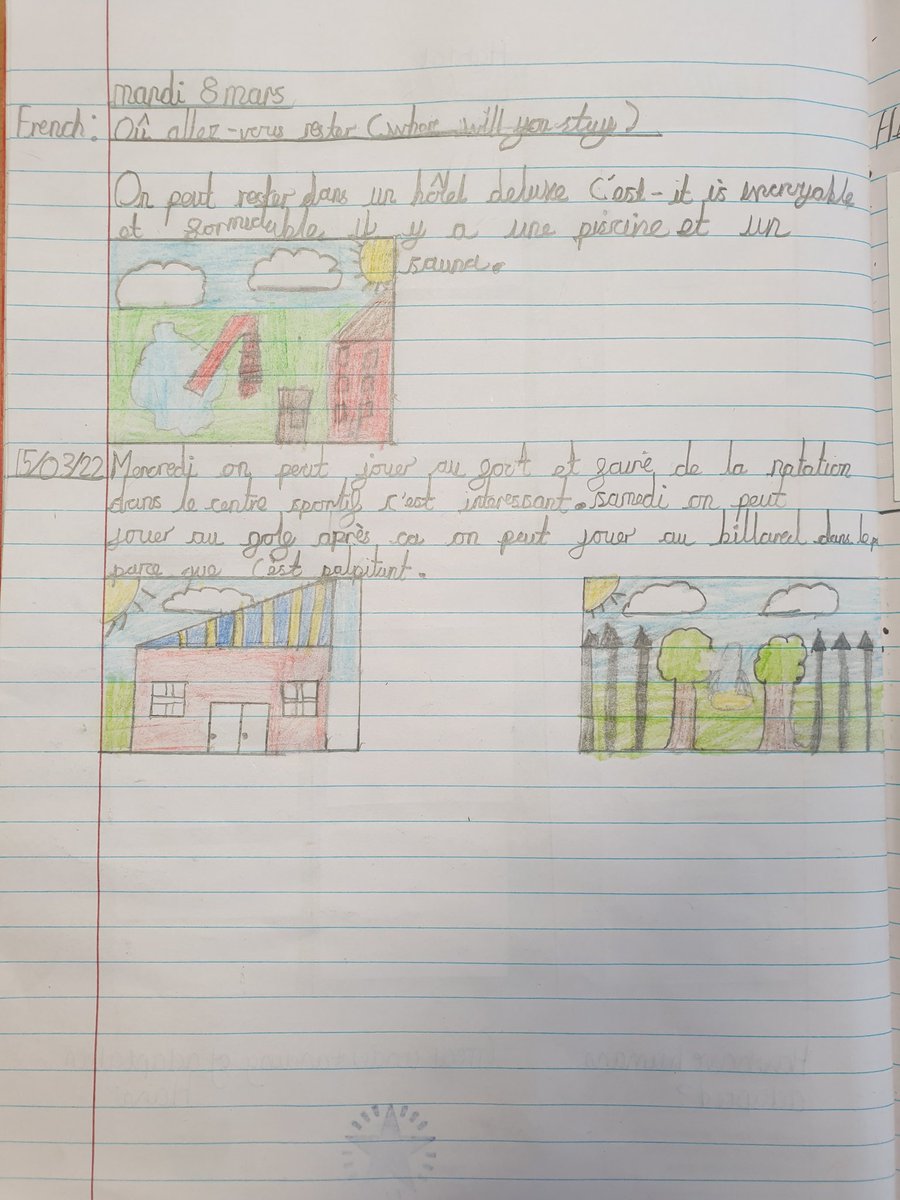 mardi 8 mars
French: Où allez-vous rester (where will you stay)
On peut rester dans un hôtel deluxe C'est - it is incroyable
et formidable il y a une piscine et un
sauna.
15/03/22 Mercredi on peut jouer au et faire de la natation
dans le centre sportif c'est interessant. samedi on peut
jouer au golf après ca on peut jouer au billard dans le
parce que c'est palpitant.